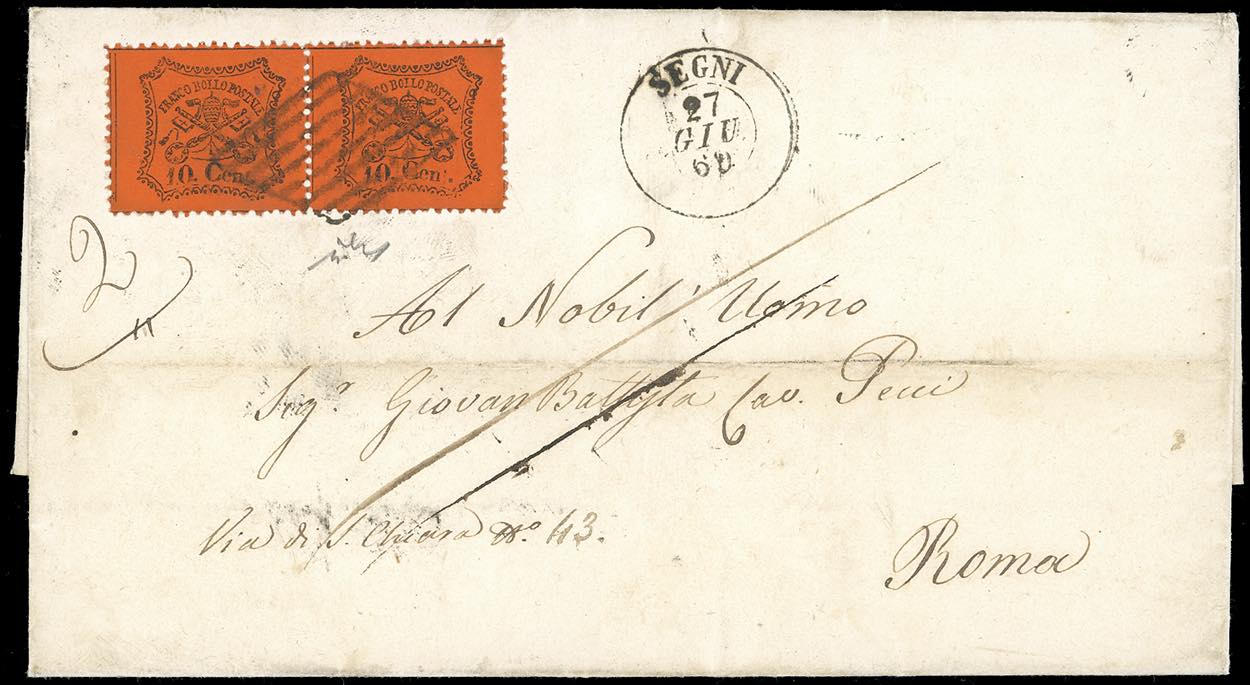 FRANCO BOLLO POSTALE
10. Cent.
FRANCO BOLLO POSTALE
10. Cent.
SEGNI
27
GIU
Al Nobil' Uomo
Sigr. Giovan Battista Cav. Pecci
Via di S. Chiara No. 43.
Roma